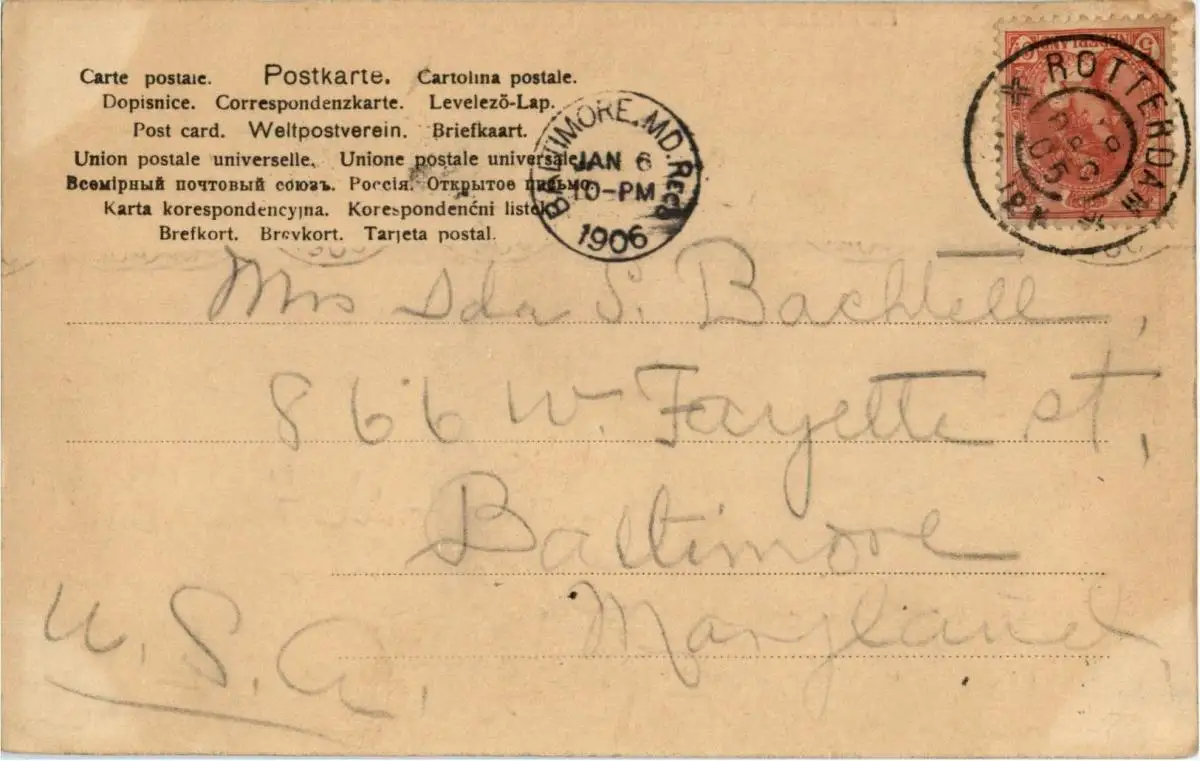 Carte postale. Postkarte. Cartolina postale.
Dopisnice. Correspondenzkarte. Levelező-Lap.
Post card. Weltpostverein. Briefkaart.
Union postale universelle. Unione postale universale.
Всемірный почтовый союзъ. Россія. Открытое письмо.
Karta korespondencyjna. Korespondenčni listek.
Brefkort. Brevkort. Tarjeta postal.
BALTIMORE, MD. REC'D
JAN 6
10-PM
1906
ROTTERDAM
05
Mrs Ida S. Bachtell,
866 W. Fayette st,
Baltimore
Maryland
U.S.A.